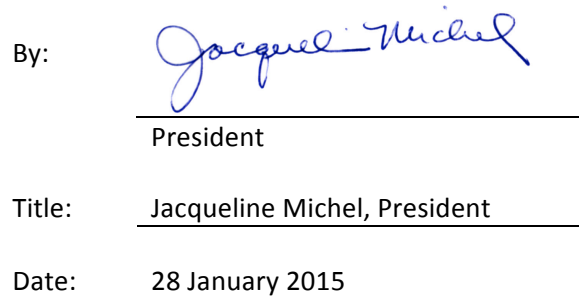 By: Jacqueline Michel
President
Title: Jacqueline Michel, President
Date: 28 January 2015